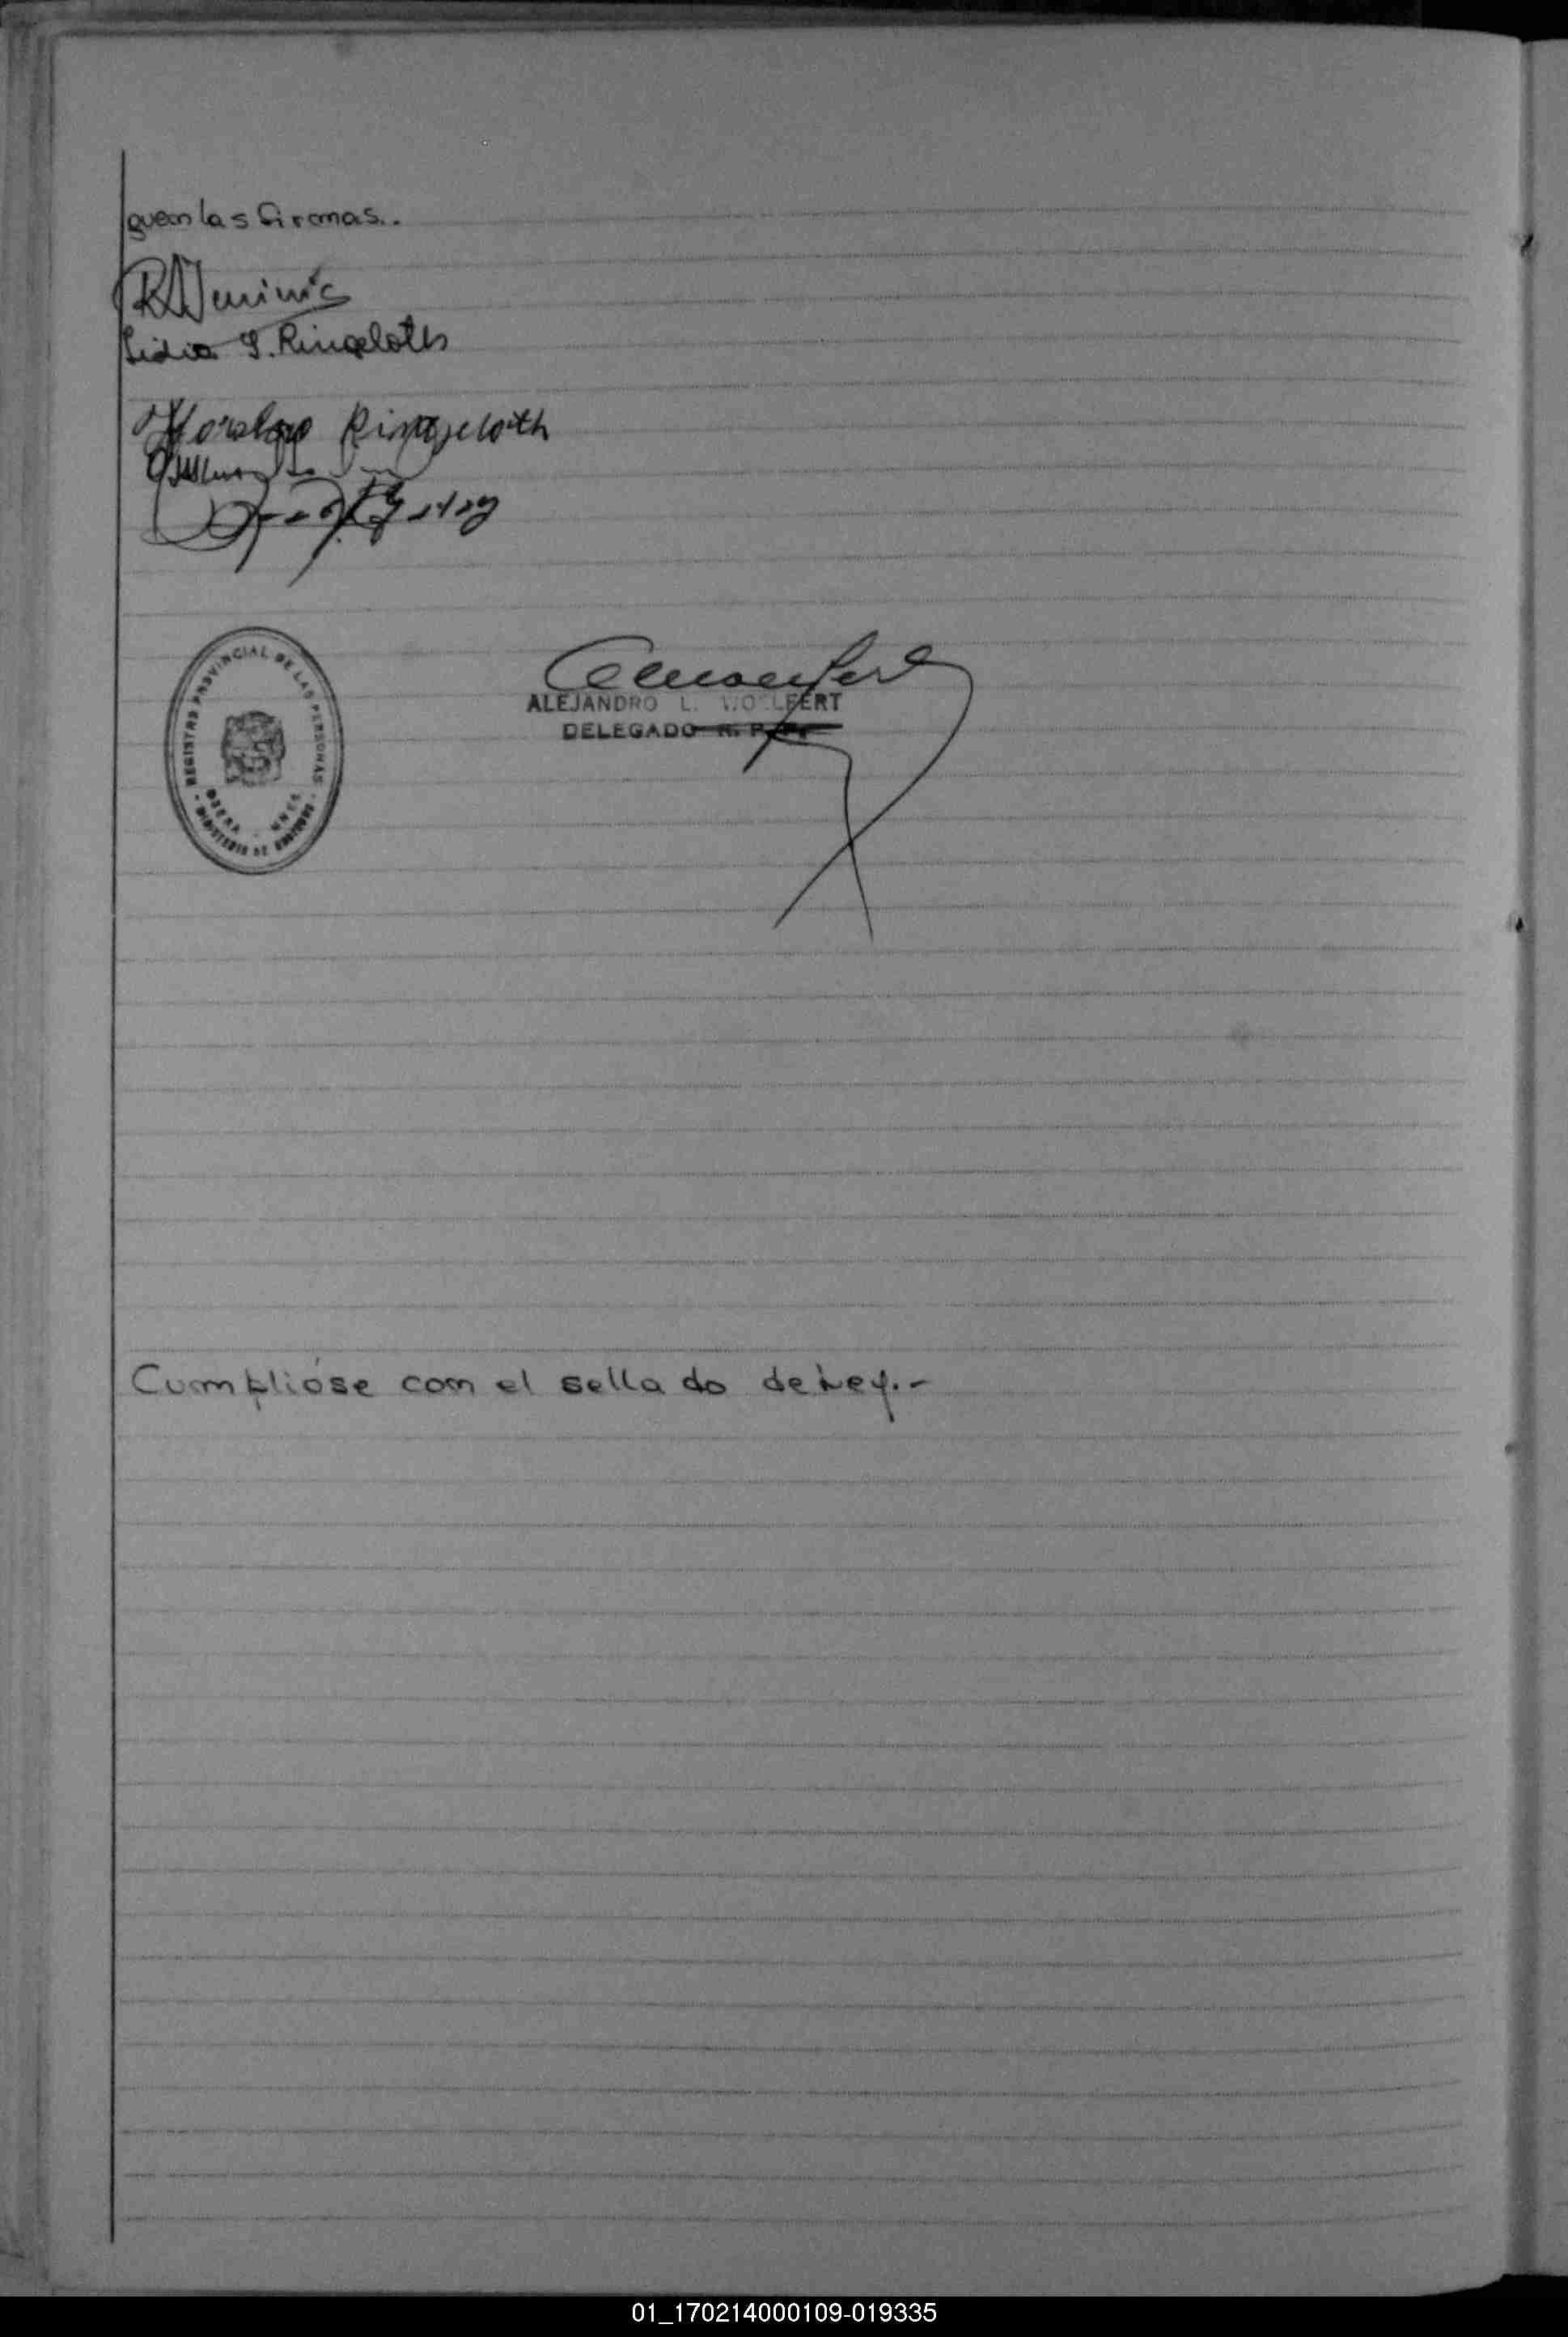 guen las firmas..
Lidia S. Ringeloth
Ringeloth
REGISTRO PROVINCIAL DE LAS PERSONAS
OBERA - MNES
MINISTERIO DE GOBIERNO
ALEJANDRO L. WOLFERT
DELEGADO R. P. P.
Cumplióse con el sellado de Ley.-
01_170214000109-019335